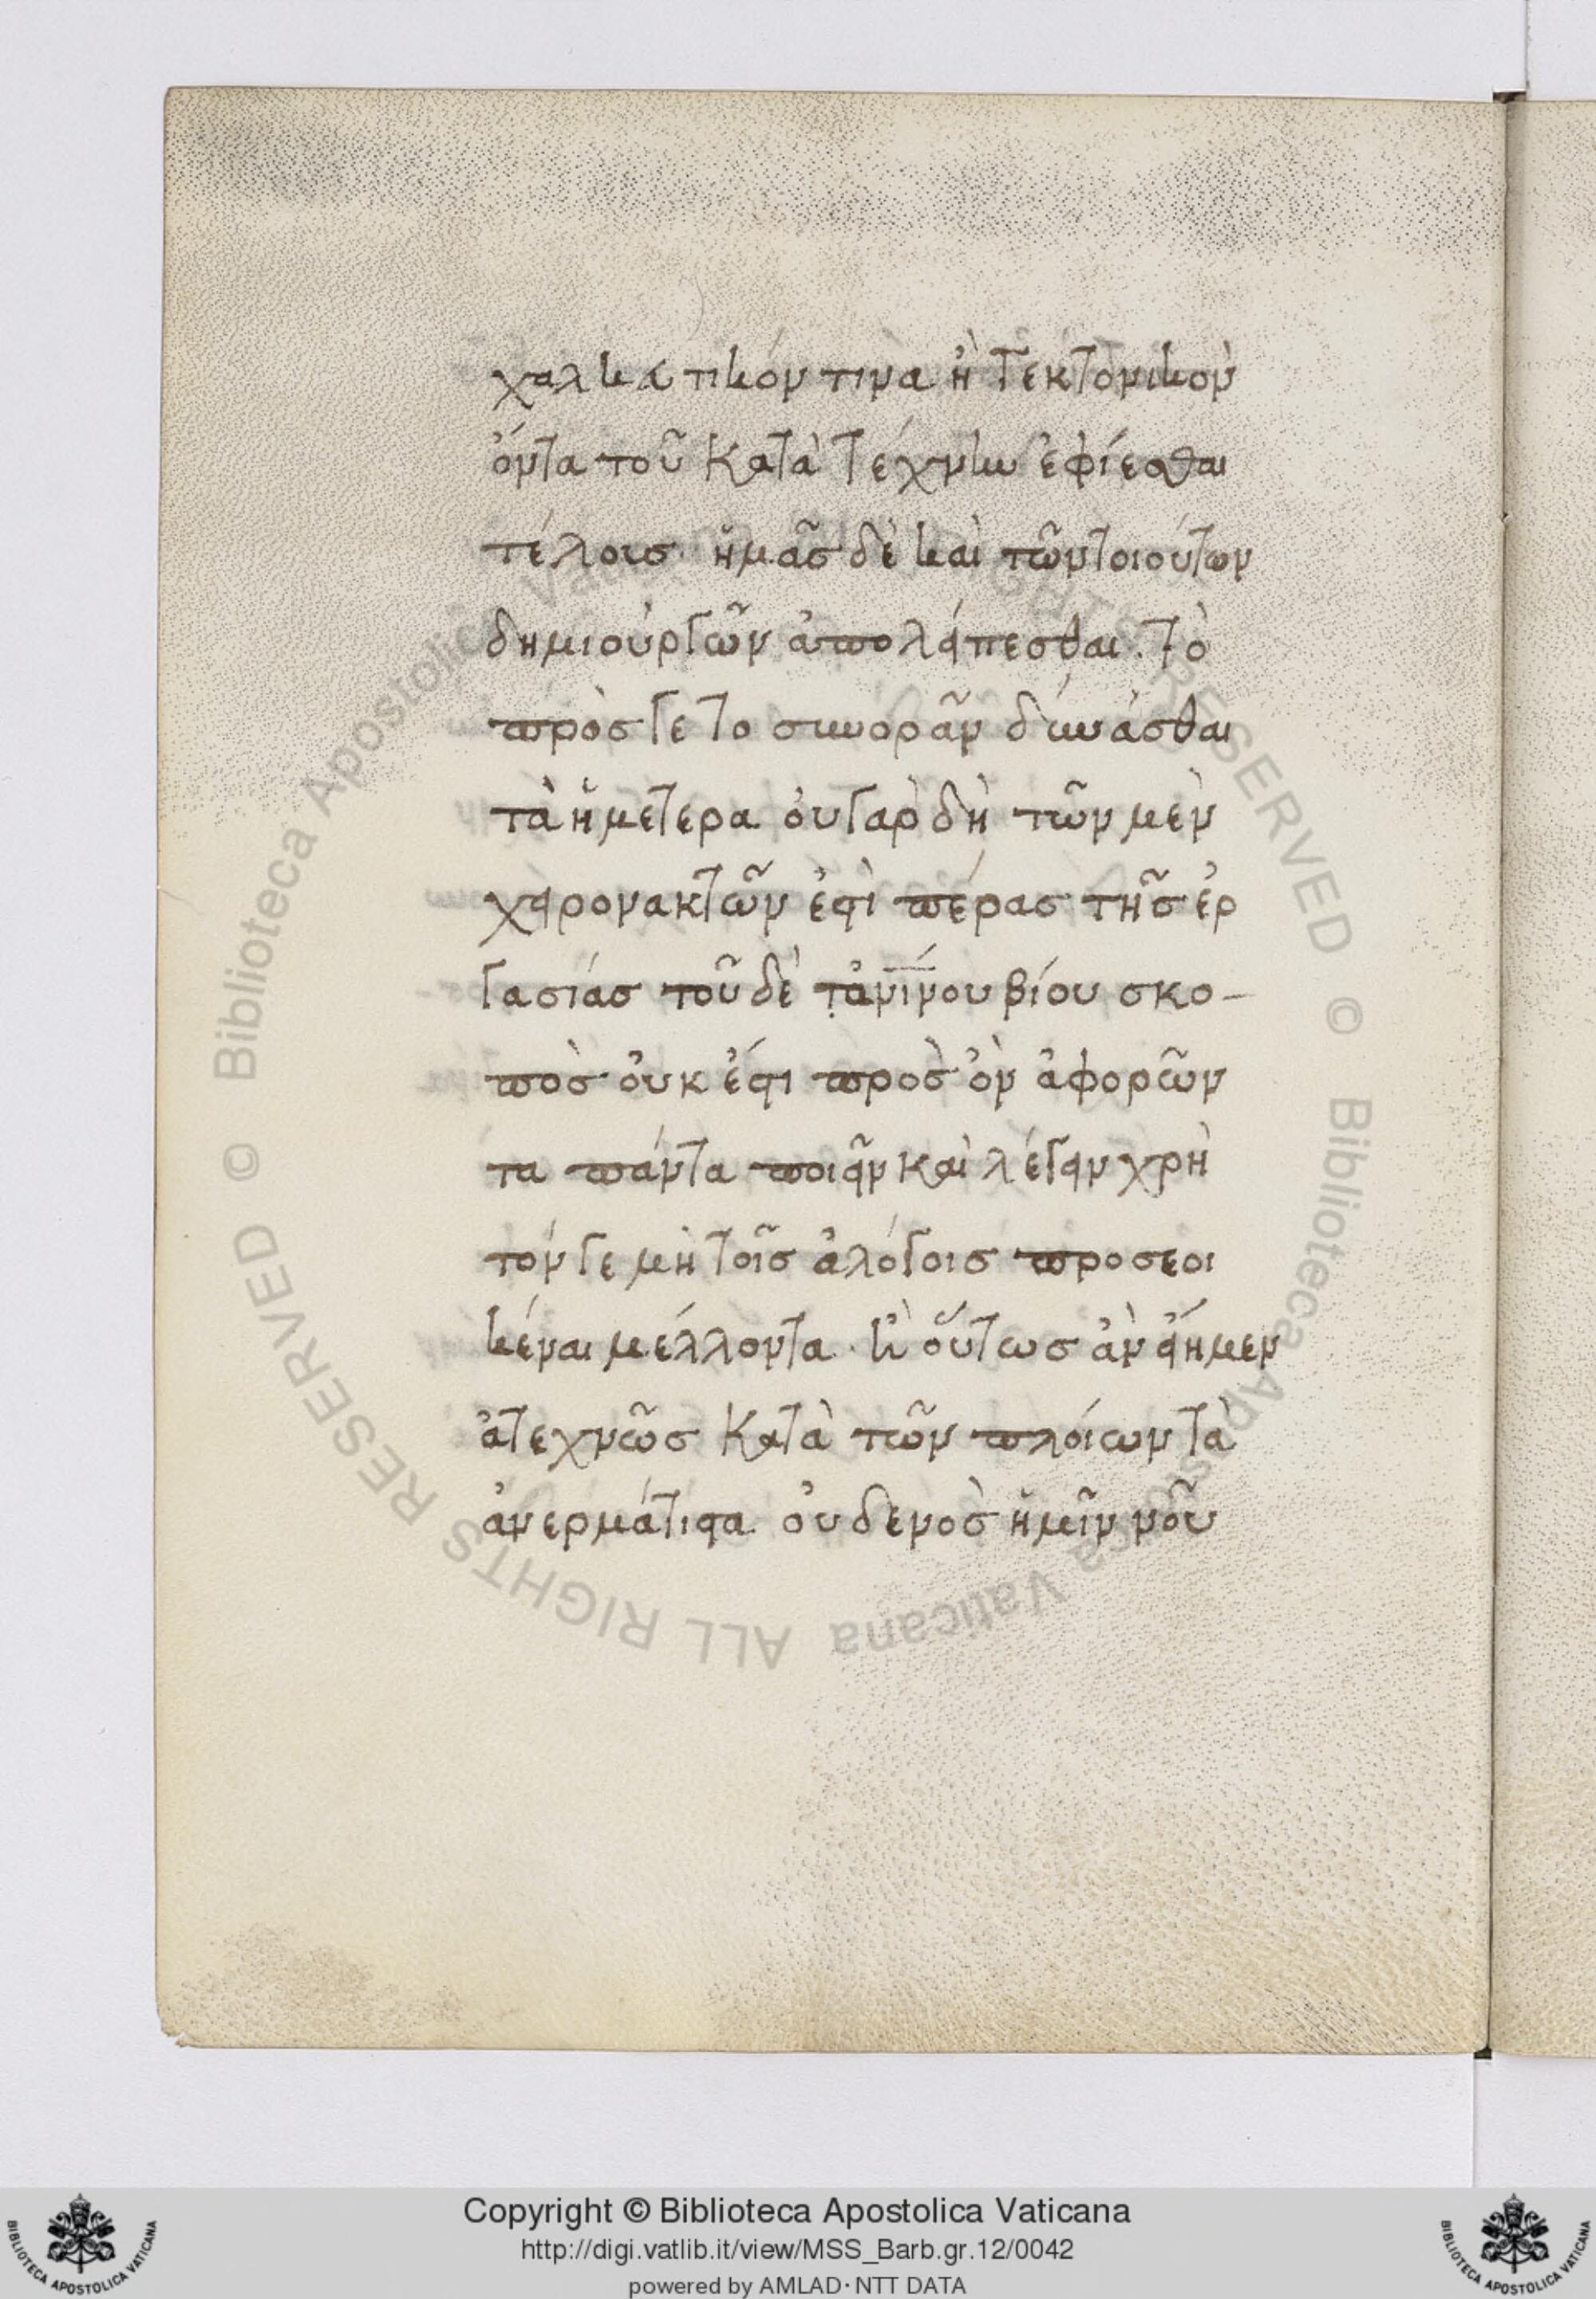 χαλκευτικόν τινα ἢ τεκτονικὸν
ὄντα τοῦ κατὰ τέχνην ἐφίεσθαι
τέλους· ἡμᾶς δὲ καὶ τῶν τοιούτων
δημιουργῶν ἀπολείπεσθαι. τὸ
πρός γε τὸ συνορᾶν δύνασθαι
τὰ ἡμέτερα. οὐ γὰρ δὴ τῶν μὲν
χειρονακτῶν ἐστὶ πέρας τῆς ἐρ
γασίας τοῦ δὲ τἀνίνου βίου σκο-
πὸς οὐκ ἔστι πρὸς ὃν ἀφορῶν
τα πάντα ποιεῖν καὶ λέγειν χρὴ
τόν γε μὴ τοῖς ἀλόγοις προσεοι
κέναι μέλλοντα· ἢ οὕτως ἂν εἴημεν
ἀτεχνῶς κατὰ τῶν πλοίων τὰ
ἀνερμάτιστα. οὐδενὸς ἡμῖν νοῦ
Copyright © Biblioteca Apostolica Vaticana
http://digi.vatlib.it/view/MSS_Barb.gr.12/0042
powered by AMLAD·NTT DATA
© Biblioteca Apostolica Vaticana ALL RIGHTS RESERVED
BIBLIOTECA APOSTOLICA VATICANA
BIBLIOTECA APOSTOLICA VATICANA